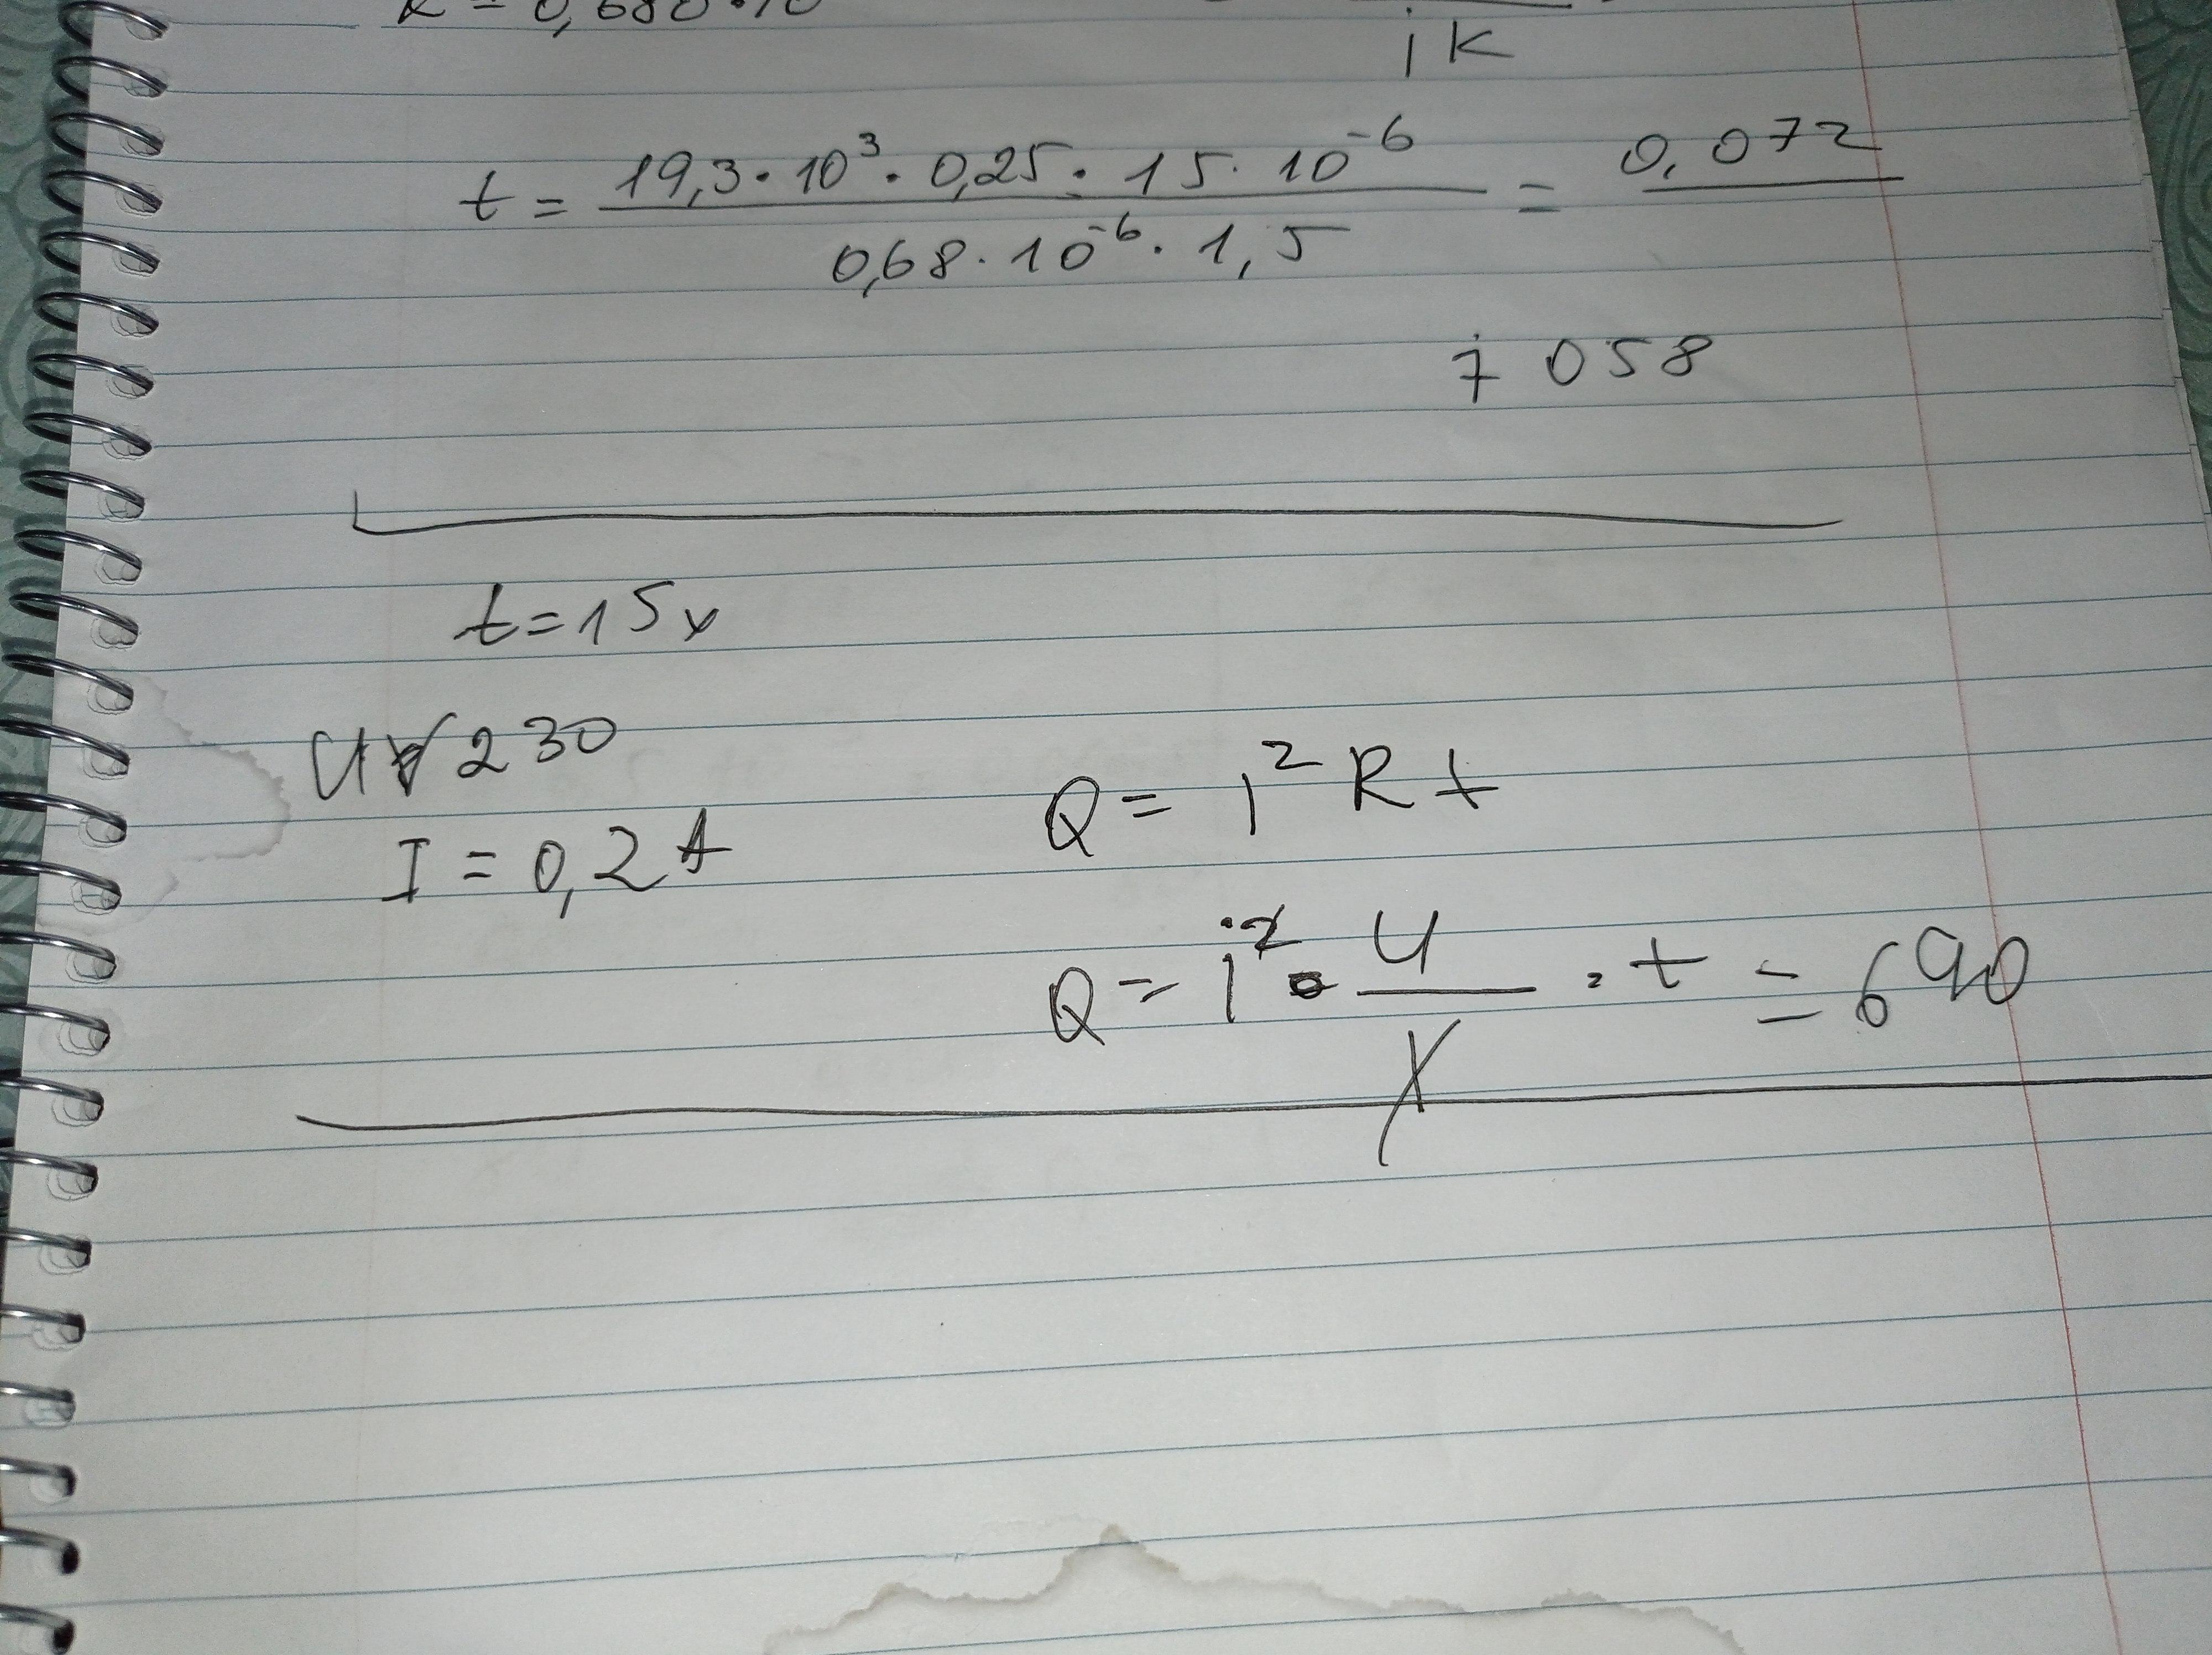 k = 0,680 · 10
i k
t = 19,3 · 10³ · 0,25 · 15 · 10⁻⁶ / 0,68 · 10⁻⁶ · 1,5 = 0,072
7 058
t = 15
U 230
I = 0,2 A
Q = I² R t
Q = I² · U / I · t = 690